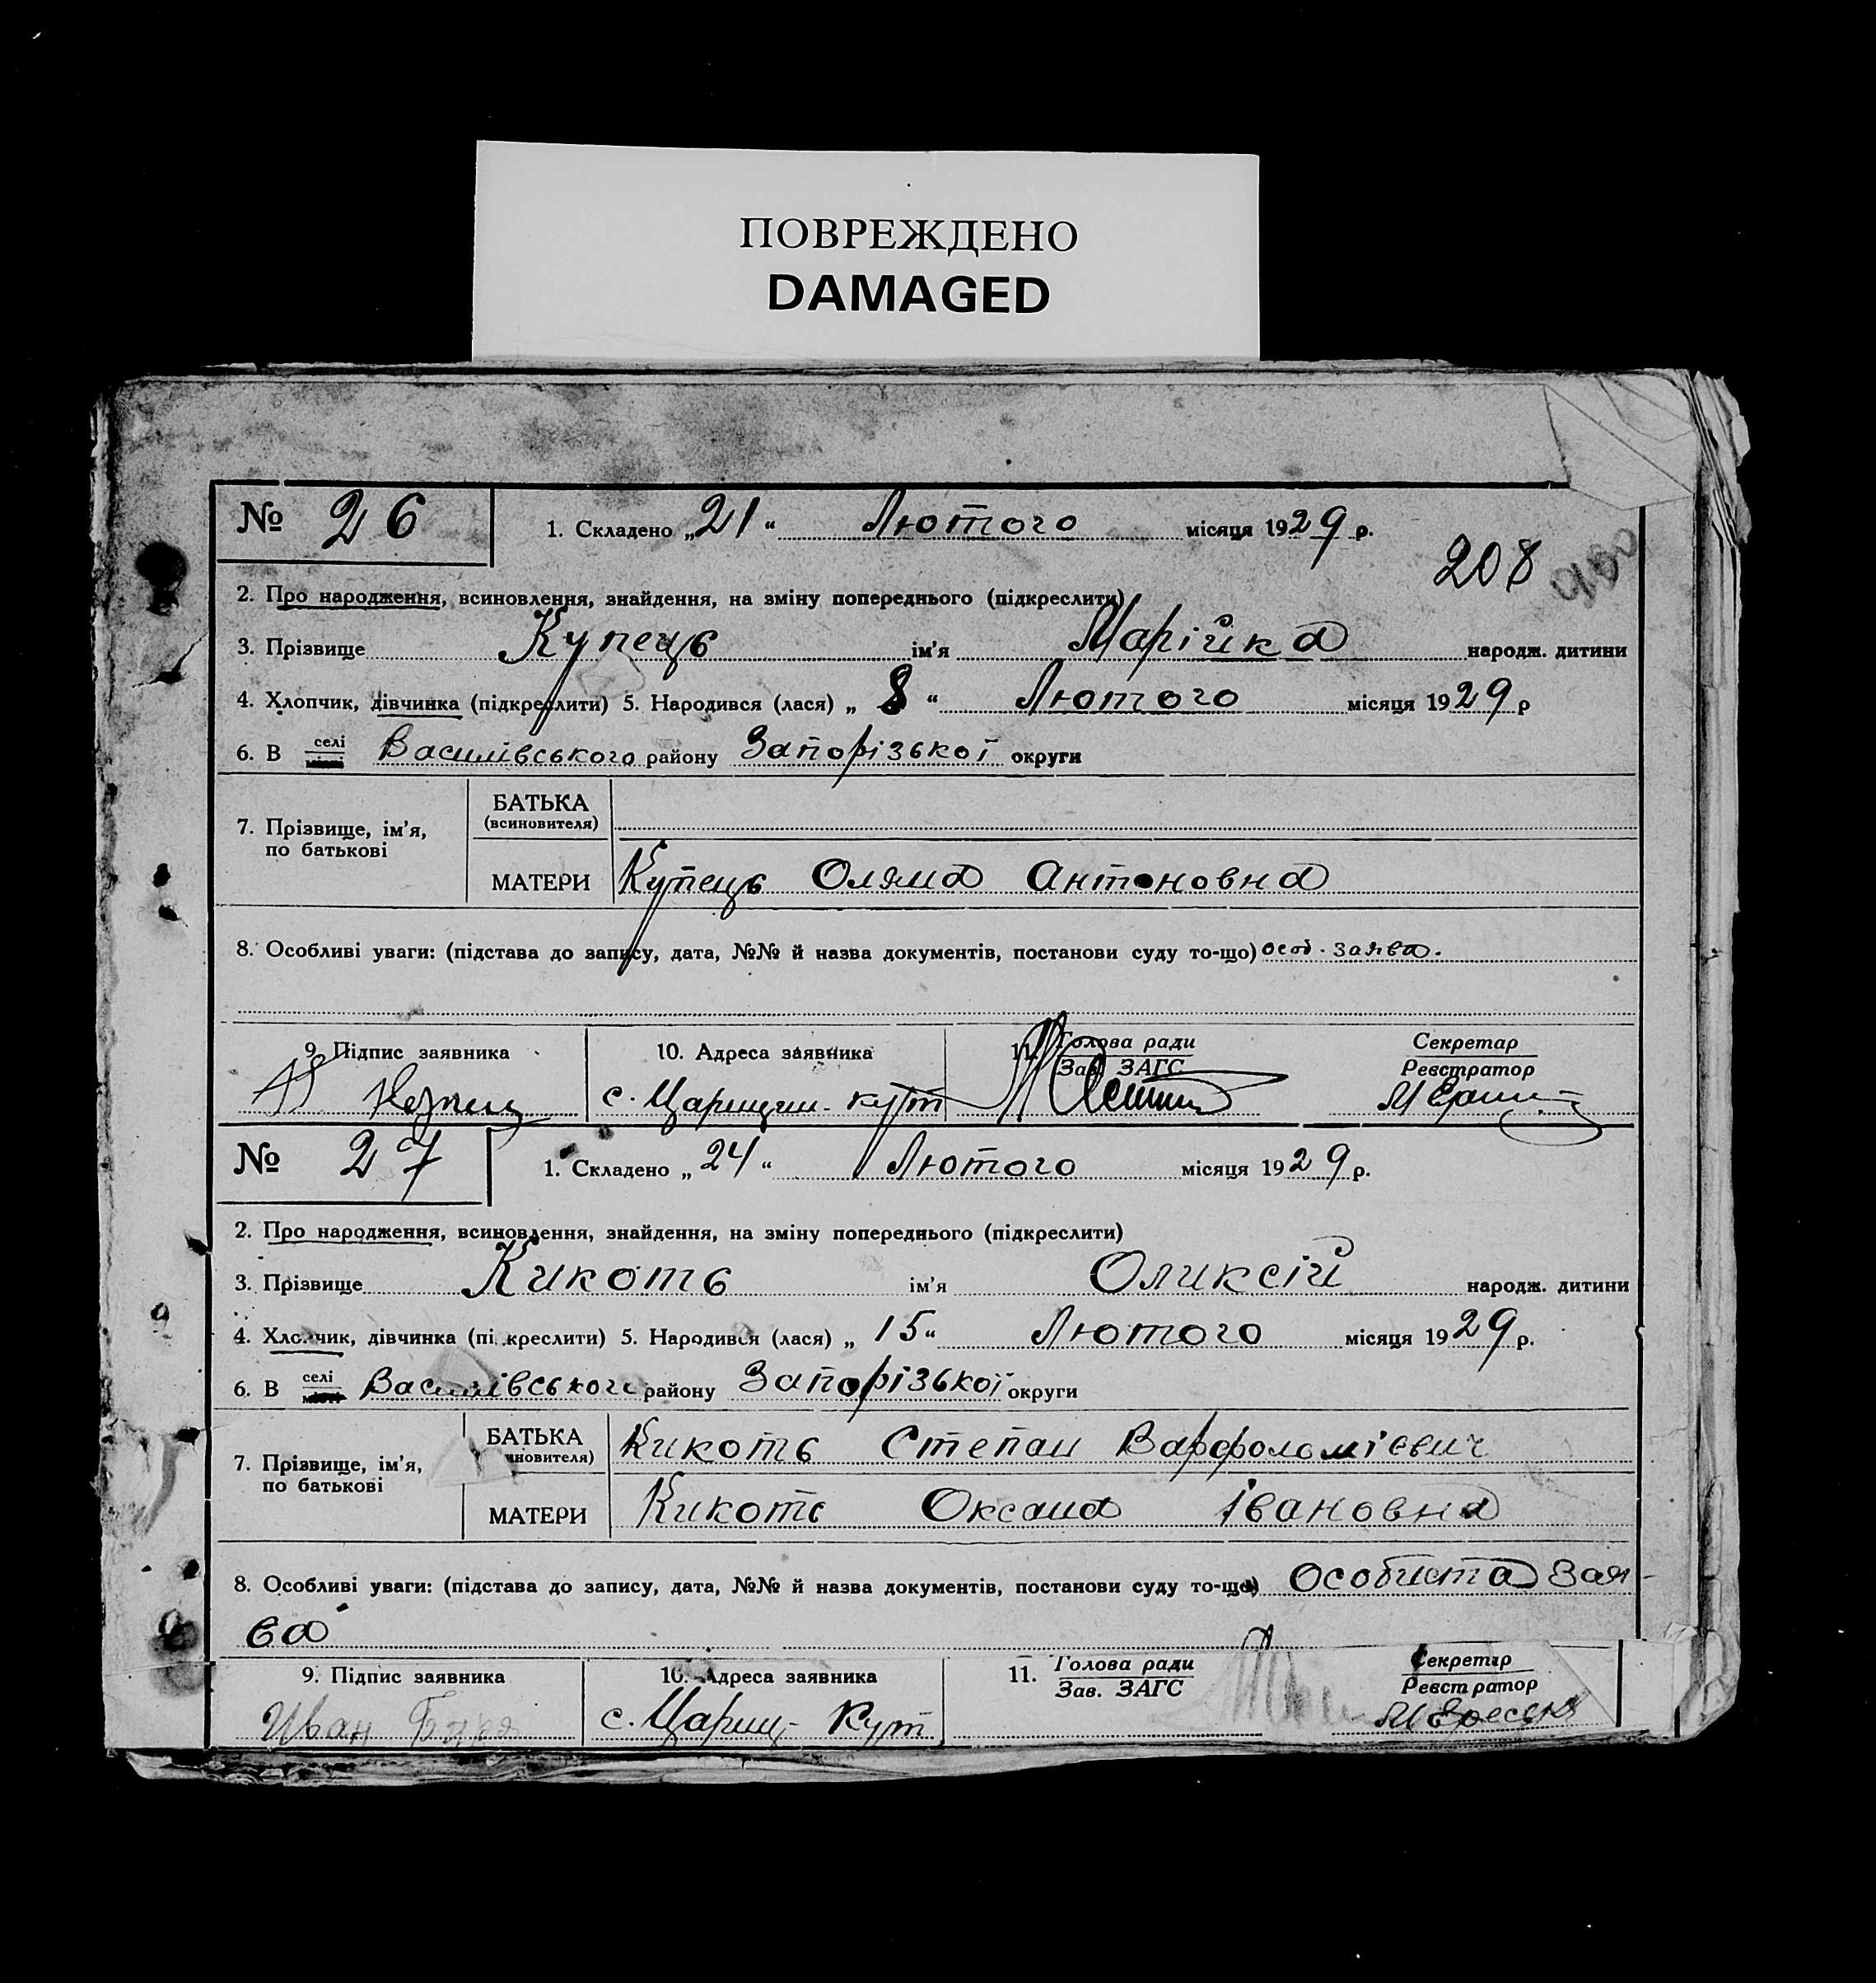 ПОВРЕЖДЕНО
DAMAGED
№ 26 1. Складено „21“ Лютого місяця 1929 р.
208
2. Про народження, всиновлення, знайдення, на зміну попереднього (підкреслити)
3. Прізвище Купець ім'я Марійка народж. дитини
4. Хлопчик, дівчинка (підкреслити) 5. Народився (лася) „8“ Лютого місяця 1929 р
6. В селі місті Василівського району Запорізької округи
7. Прізвище, ім'я, по батькові
БАТЬКА (всиновителя)
МАТЕРИ Купець Оляна Антоновна
8. Особливі уваги: (підстава до запису, дата, №№ й назва документів, постанови суду то-що) особ. заява.
9. Підпис заявника 10. Адреса заявника 11. Голова ради Зав. ЗАГС Секретар Реєстратор
Купец с. Царицин-кут
№ 27 1. Складено „24“ Лютого місяця 1929 р.
2. Про народження, всиновлення, знайдення, на зміну попереднього (підкреслити)
3. Прізвище Кикоть ім'я Оликсій народж. дитини
4. Хлопчик, дівчинка (підкреслити) 5. Народився (лася) „15“ Лютого місяця 1929 р.
6. В селі місті Василівського району Запорізької округи
7. Прізвище, ім'я, по батькові
БАТЬКА (всиновителя) Кикоть Степан Варфоломієвич
МАТЕРИ Кикоть Оксана Івановна
8. Особливі уваги: (підстава до запису, дата, №№ й назва документів, постанови суду то-що) Особиста Зая-
ва
9. Підпис заявника 10. Адреса заявника 11. Голова ради Зав. ЗАГС Секретар Реєстратор
Иван с. Цариц-Кут